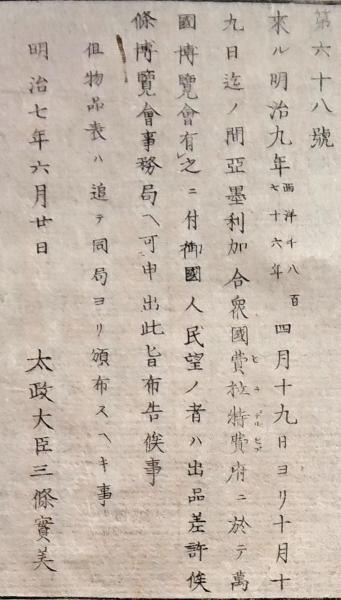 第六十八號
來ル明治九年西洋千八百七十六年四月十九日ヨリ十月十
九日迄ノ間亞墨利加合衆國費拉特費府ニ於テ萬
國博覽會有之ニ付御國人民望ノ者ハ出品差許候
條博覽會事務局ヘ可申出此旨布告候事
但物品表ハ追テ同局ヨリ頒布スヘキ事
明治七年六月廿日
太政大臣三條實美